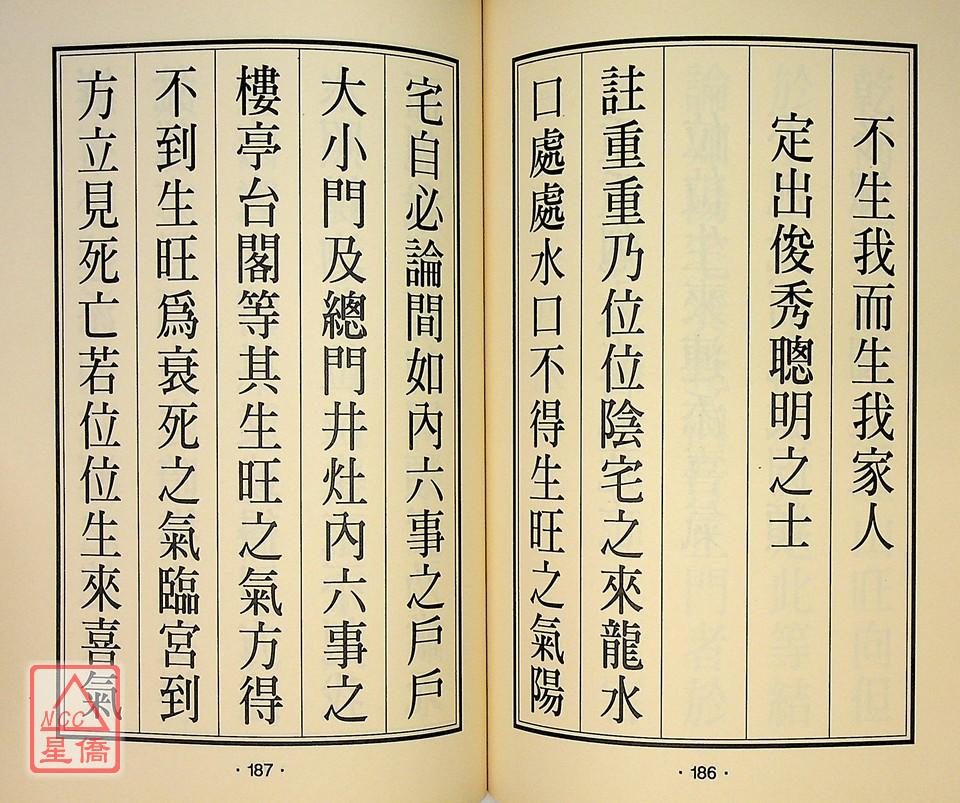 不生我而生我家人
定出俊秀聰明之士
註重重乃位位陰宅之來龍水
口處處水口不得生旺之氣陽
·186·
宅自必論間如內六事之戶戶
大小門及總門井灶內六事之
樓亭台閣等其生旺之氣方得
不到生旺爲衰死之氣臨宮到
方立見死亡若位位生來喜氣
·187·
NCC
星僑